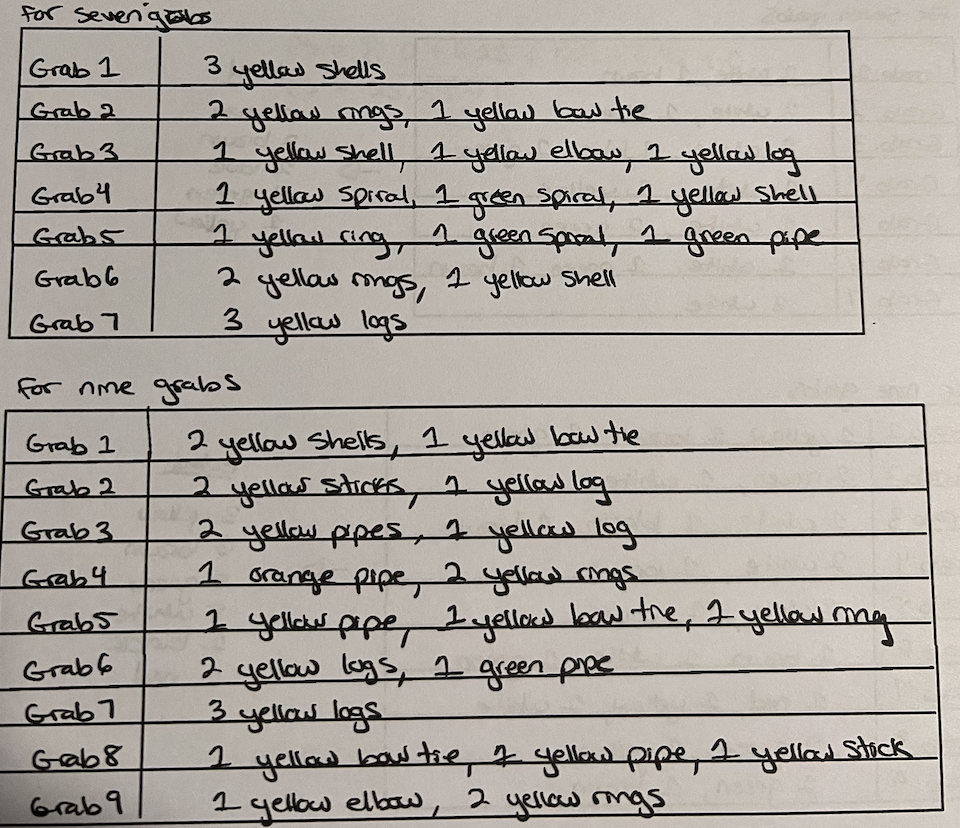 For seven grabs
Grab 1 3 yellow shells
Grab 2 2 yellow rings, 1 yellow bow tie
Grab 3 1 yellow shell, 1 yellow elbow, 1 yellow log
Grab 4 1 yellow spiral, 1 green spiral, 1 yellow shell
Grab 5 1 yellow ring, 1 green spiral, 1 green pipe
Grab 6 2 yellow rings, 1 yellow shell
Grab 7 3 yellow logs
For nine grabs
Grab 1 2 yellow shells, 1 yellow bow tie
Grab 2 2 yellow sticks, 1 yellow log
Grab 3 2 yellow pipes, 1 yellow log
Grab 4 1 orange pipe, 2 yellow rings
Grab 5 1 yellow pipe, 1 yellow bow tie, 1 yellow ring
Grab 6 2 yellow logs, 1 green pipe
Grab 7 3 yellow logs
Grab 8 1 yellow bow tie, 1 yellow pipe, 1 yellow stick
Grab 9 1 yellow elbow, 2 yellow rings